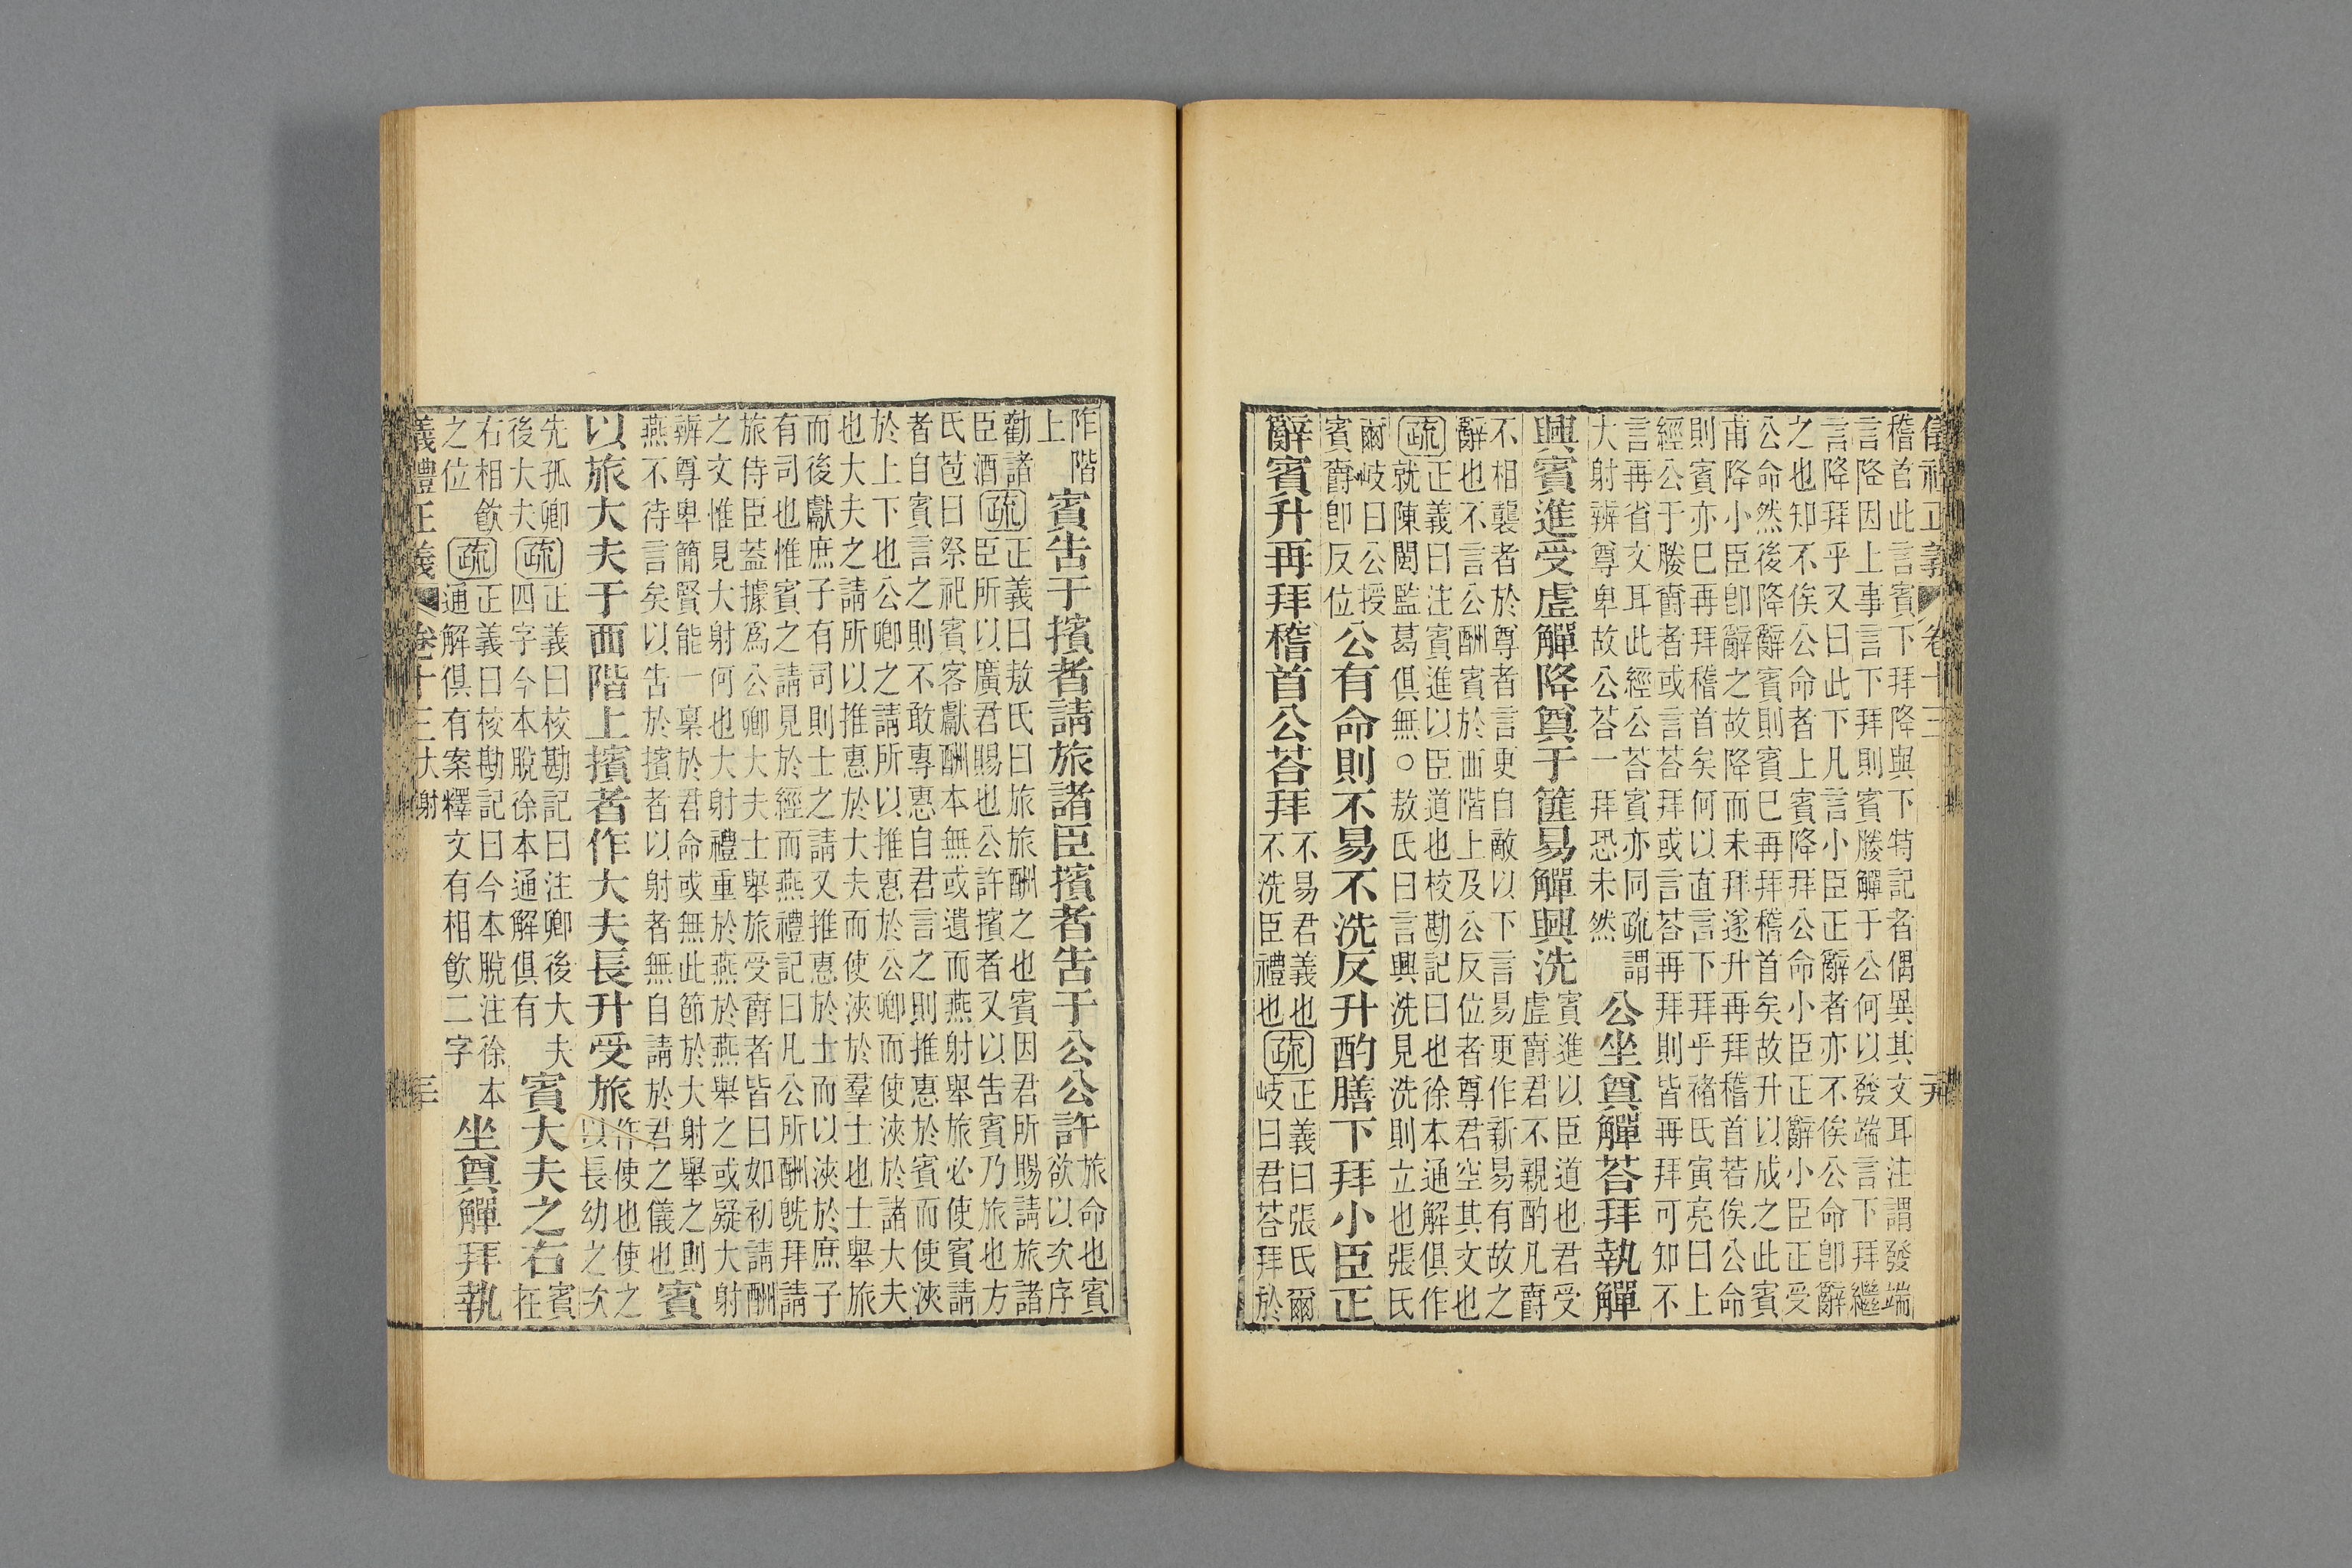 儀禮正義 卷十三
稽首此言賓下拜降與下特記者偶異其文耳注謂發端
言降因上事言下拜則賓媵觶于公何以發端言下拜繼
言降拜乎又曰此下凡言小臣正辭者亦不俟公命卽辭
之也知不俟公命者上賓降拜公命小臣正辭小臣正受
公命然後降辭賓則賓巳再拜稽首矣故升以成之此賓
甫降小臣卽辭之故降而未拜遂升再拜稽首若俟公命
則賓亦巳再拜稽首矣何以直言下拜乎褚氏寅亮曰上
經公于媵爵者或言荅拜或言荅再拜則皆再拜可知不
言再省文耳此經公荅賓亦同疏謂
大射辨尊卑故公荅一拜恐未然
公坐奠觶荅拜執觶
興賓進受虛觶降奠于篚易觶興洗
賓進以臣道也君受
虛爵君不親酌凡爵
不相襲者於尊者言更自敵以下言易更作新易有故之
辭也不言公酬賓於西階上及公反位者尊君空其文也
疏正義曰注賓進以臣道也校勘記曰也徐本通解俱作
就陳閩監葛俱無○敖氏曰言興洗見洗則立也張氏
爾岐曰公授
賓爵卽反位
公有命則不易不洗反升酌膳下拜小臣正
辭賓升再拜稽首公荅拜
不易君義也
不洗臣禮也
疏正義曰張氏爾
岐曰君荅拜於
阼階
上
賓告于擯者請旅諸臣擯者告于公公許
旅命也賓
欲以次序
勸諸
臣酒
疏正義曰敖氏曰旅旅酬之也賓因君所賜請旅諸
臣所以廣君賜也公許擯者又以告賓乃旅也方
氏苞曰祭祀賓客獻酬本無或遺而燕射舉旅必使賓請
者自賓言之則不敢專惠自君言之則推惠於賓而使浹
於上下也公卿之請所以推惠於公卿而使浹於諸大夫
也大夫之請所以推惠於大夫而使浹於羣士也士舉旅
而後獻庶子有司則士之請又推惠於士而以浹於庶子
有司也惟賓之請見於經而燕禮記曰凡公所酬旣拜請
旅侍臣蓋據爲公卿大夫士舉旅受爵者皆曰如初請酬
之文惟見大射何也大射禮重於燕於燕舉之或疑大射
辨尊卑簡賢能一稟於君命或無此節於大射舉之則
燕不待言矣以告於擯者以射者無自請於君之儀也
賓
以旅大夫于西階上擯者作大夫長升受旅
作使也使之
以長幼之次
先孤卿
後大夫
疏正義曰校勘記曰注卿後大夫
四字今本脫徐本通解俱有
賓大夫之右
賓在
右相飲
之位
疏正義曰校勘記曰今本脫注徐本
通解俱有案釋文有相飮二字
坐奠觶拜執
義禮正義 卷十三大射